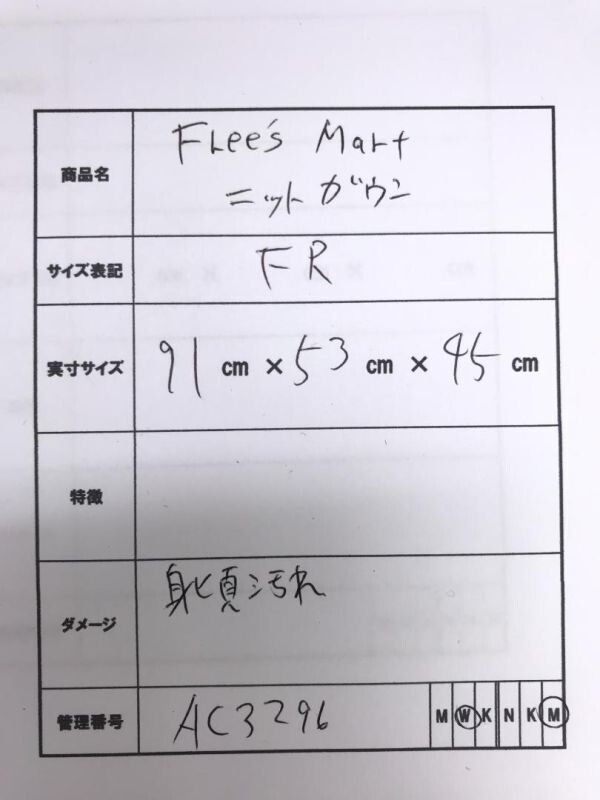 商品名 FLee's Mart
ニットガウン
サイズ表記 FR
実寸サイズ 91 cm × 53 cm × 45 cm
特徴
ダメージ 身頃汚れ
管理番号 AC3296 M W K N K M